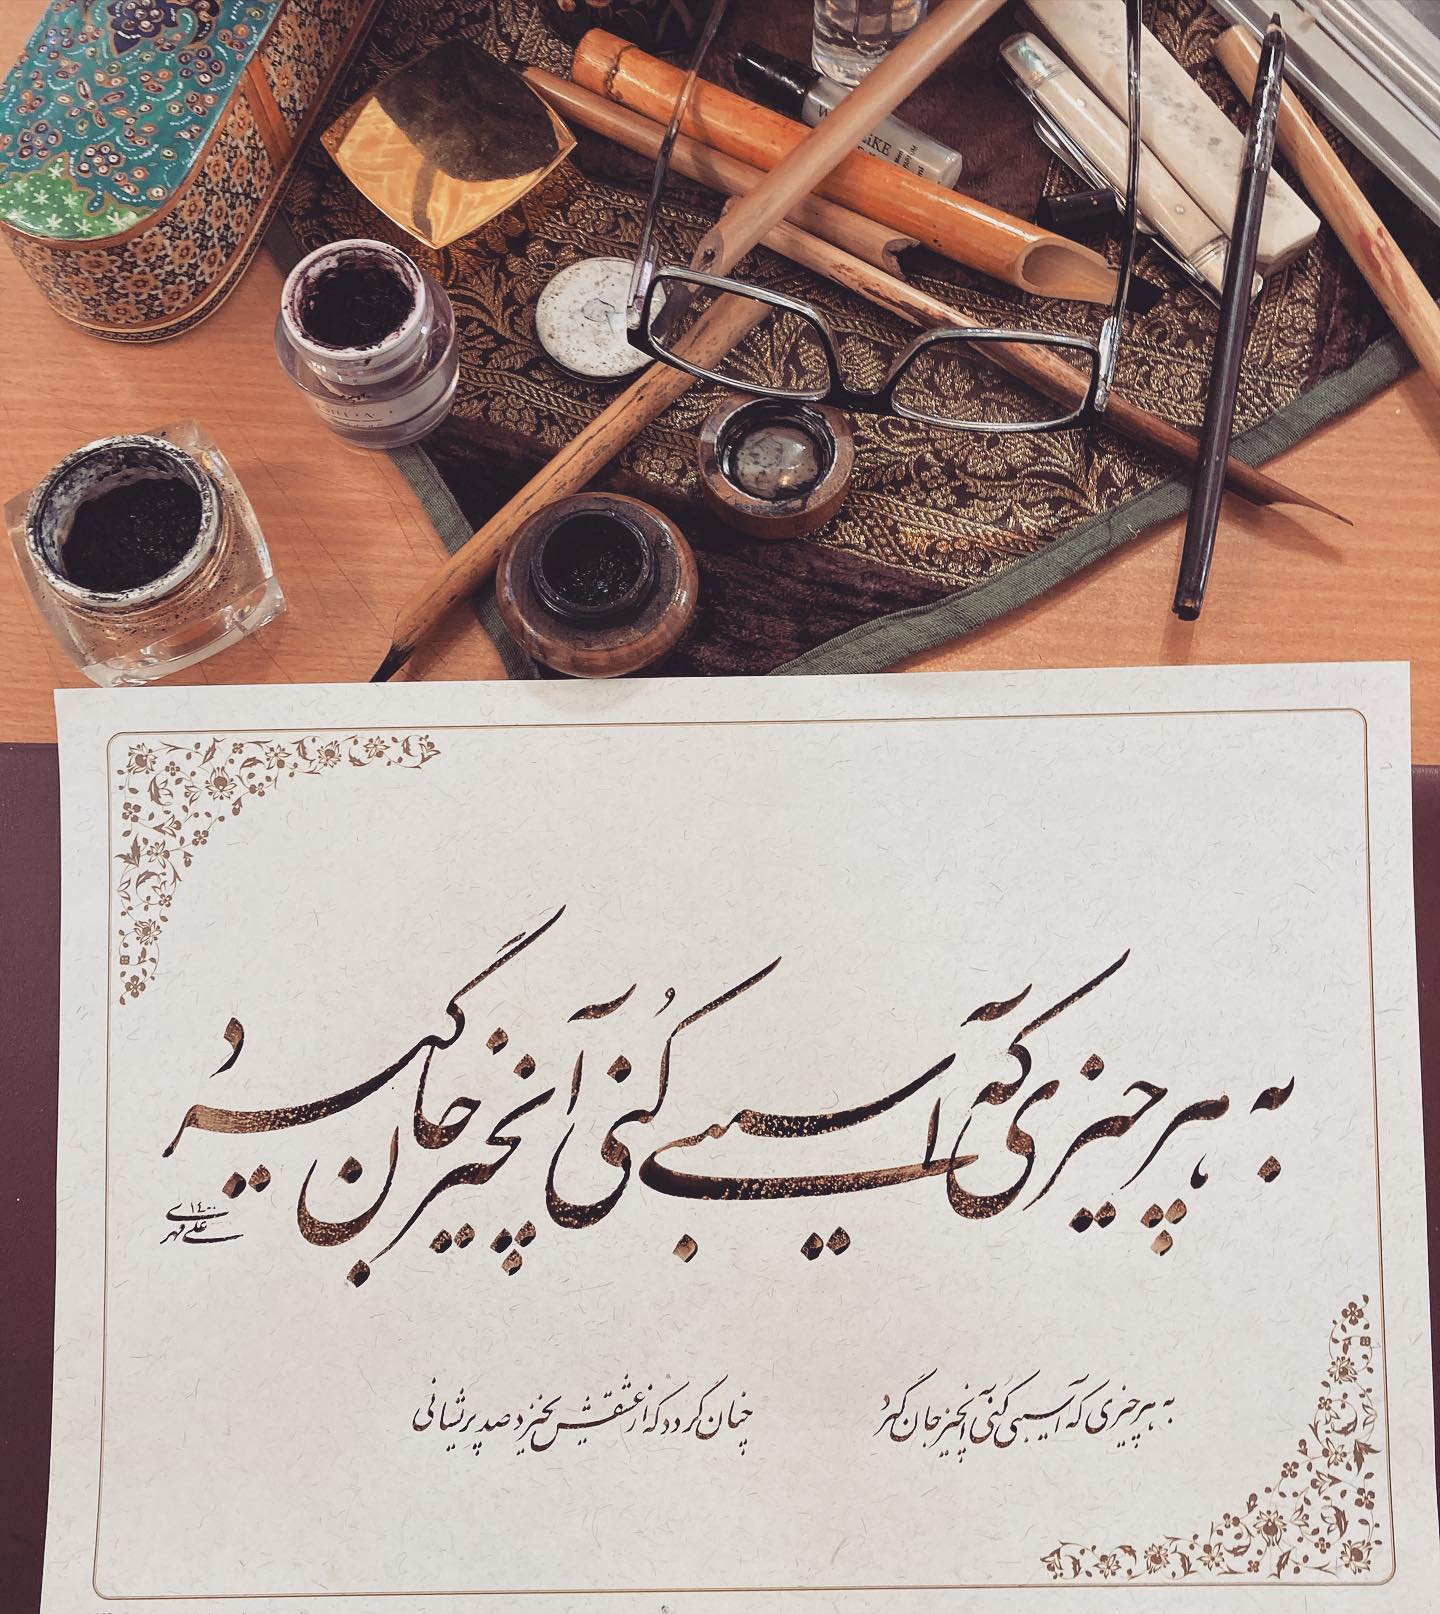 به هر چیزی که آسیبی کنی آن چیز جان گیرد
۱۴۰۰
علی مهری
به هر چیزی که آسیبی کنی آن چیز جان گیرد
چنان گردد که از عشقش بخیزد صد پریشانی